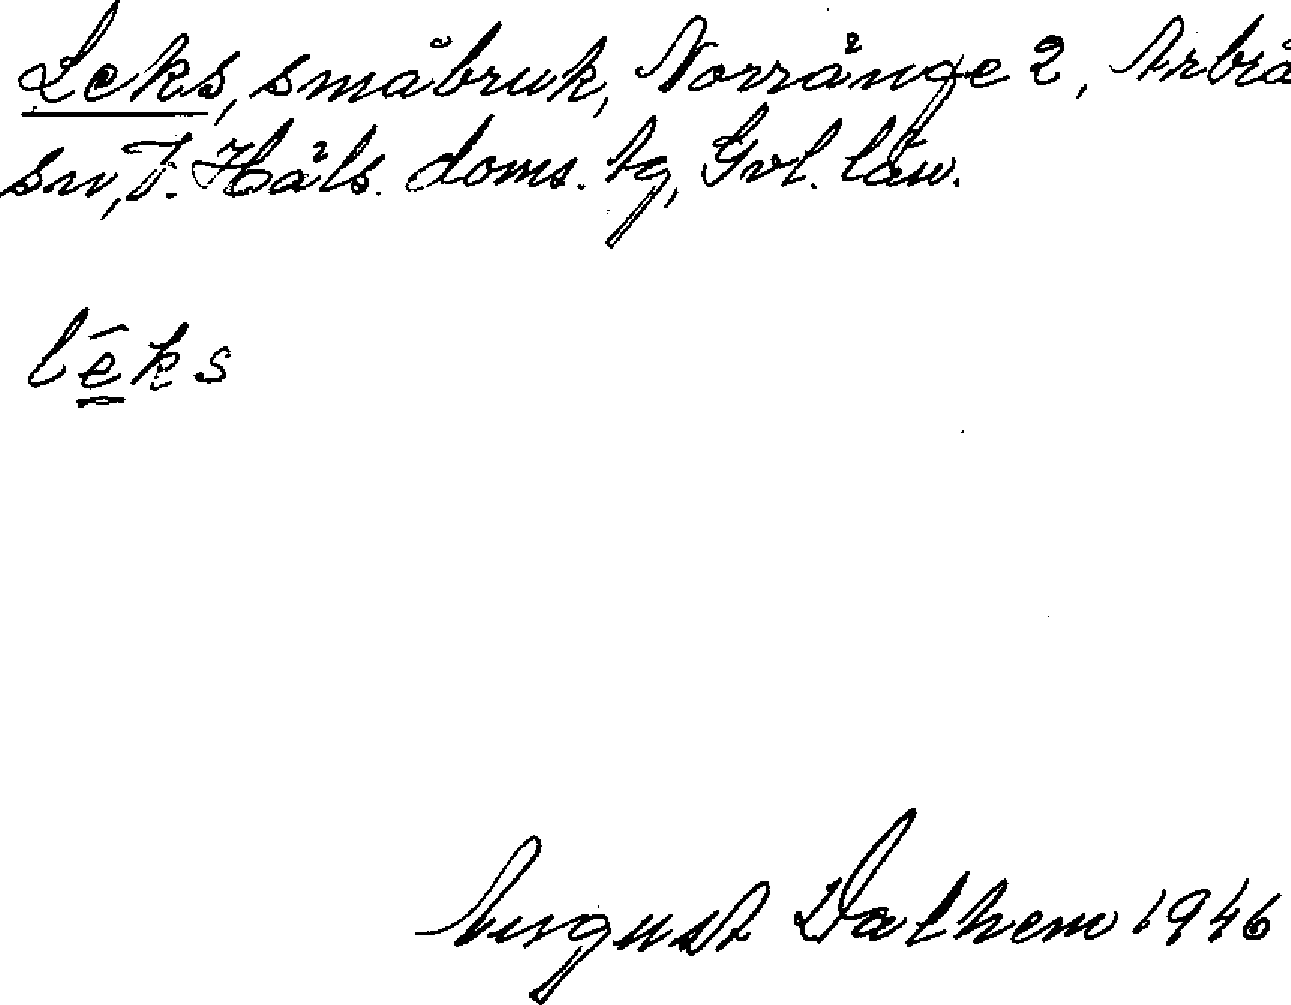 Leks, småbruk, Norränge 2, Arbrå
sn, V. Häls. doms. tg, Gvl. län.
lēks
August Dathem 1946